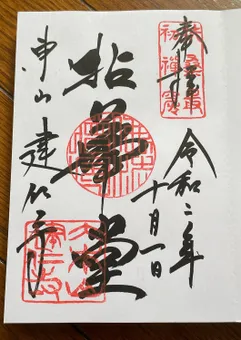 奉拝
令和二年
十月一日
拈華堂
東山 建仁寺